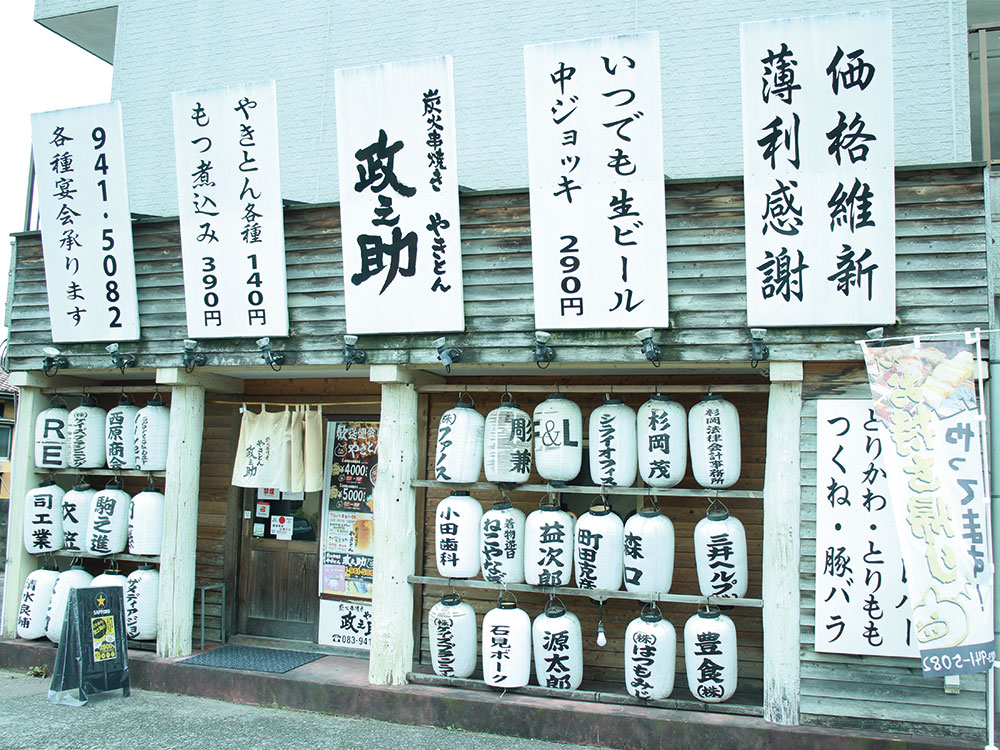 価格維新
薄利感謝
いつでも生ビール
中ジョッキ 290円
炭火串焼き やきとん
政之助
やきとん各種 140円
もつ煮込み 390円
941・5082
各種宴会承ります
RE
西原商会
司工業
駒之進
清水泉
やきとん
政之助
やきとん
4000
5000
炭火串焼き やきとん
政之助
083-941
SAPPORO
(株)ファノス
彫兼
F&L
シライオリス
杉岡茂
杉岡法律会計事務所
小田歯科
着物遊日
ねこやなぎ
益次郎
町田克
森口
三井ヘルプ
石見ポーク
源太郎
(株)はつもみぢ
豊食(株)
とりかわ・とりもも
つくね・豚バラ
お持ち帰り
やってます!